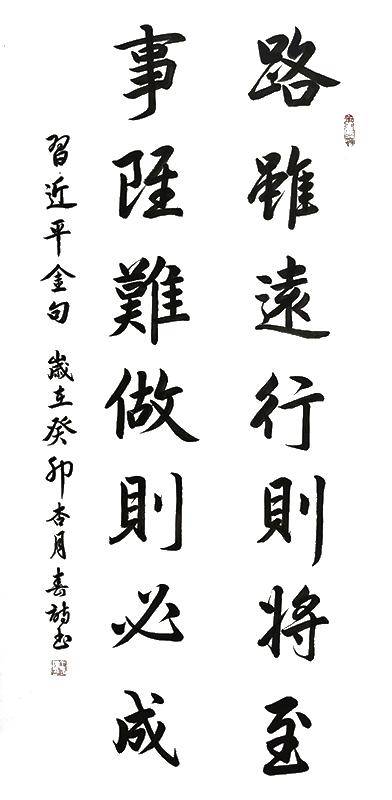 路雖遠行則將至
事雖難做則必成
習近平金句 歲在癸卯杏月春詩玉